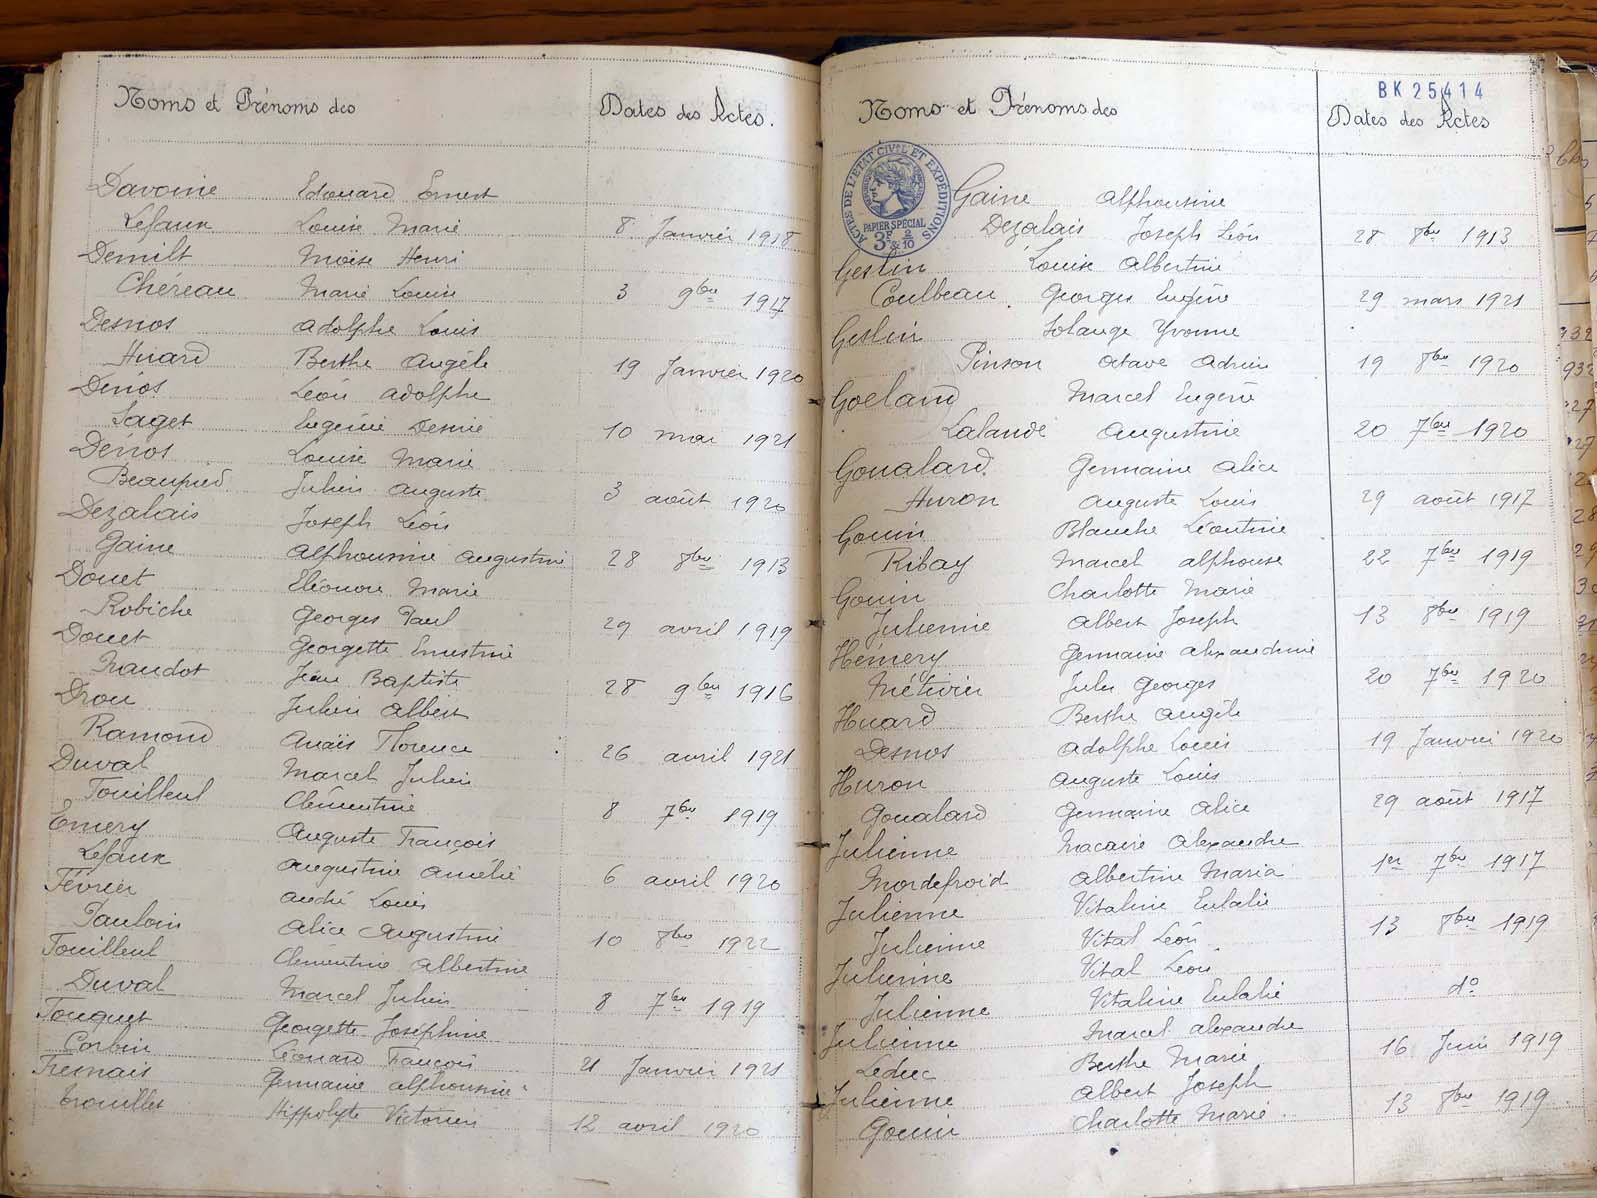 Noms et Prénoms des Dates des Actes.
Davoine Edouard Ernest
Lefaux Louise Marie 8 Janvier 1918
Demilt Moïse Henri
Chéreau Marie Louise 3 9bre 1917
Desnos Adolphe Louis
Huard Berthe Angèle 19 Janvier 1920
Dénos Léon Adolphe
Saget Eugénie Désirée 10 mai 1921
Dénos Louise Marie
Beaupied Julien Auguste 3 août 1920
Dezalais Joseph Léon
Gaine Alphonsine Augustine 28 8bre 1913
Douet Eléonore Marie
Robiche Georges Paul 29 avril 1919
Douet Georgette Ernestine
Naudot Jean Baptiste 28 9bre 1916
Drou Julien Albert
Ramond Anaïs Florence 26 avril 1921
Duval Marcel Julien
Fouilleul Clémentine 8 7bre 1919
Emery Auguste François
Lefaux Augustine Amélie 6 avril 1920
Février André Louis
Paulouin Alice Augustine 10 8bre 1922
Fouilleul Clémentine Albertine
Duval Marcel Julien 8 7bre 1919
Fouquet Georgette Joséphine
Corbin Léonard François 21 Janvier 1921
Fresnais Germaine Alphonsine
Trouillet Hippolyte Victorien 12 avril 1920
BK 25414
Noms et Prénoms des Dates des Actes
ACTES DE L'ETAT CIVIL ET EXPÉDITIONS
PAPIER SPÉCIAL
3F & 2/10
Gaine Alphonsine
Dezalais Joseph Léon 28 8bre 1913
Geslin Louise Albertine
Coulbeau Georges Eugène 29 mars 1921
Geslin Solange Yvonne
Pinson Octave Adrien 19 8bre 1920
Goeland Marcel Eugène
Lalande Augustine 20 7bre 1920
Goualard Germaine Alice
Huron Auguste Louis 29 août 1917
Gouin Blanche Léontine
Ribay Marcel Alphonse 22 7bre 1919
Gouin Charlotte Marie
Julienne Albert Joseph 13 8bre 1919
Hémery Germaine Alexandrine
Métivier Jules Georges 20 7bre 1920
Huard Berthe Angèle
Desnos Adolphe Louis 19 Janvier 1920
Huron Auguste Louis
Goualard Germaine Alice 29 août 1917
Julienne Macaire Alexandre
Mordefroid Albertine Maria 1er 7bre 1917
Julienne Vitaline Eulalie
Julienne Vital Léon 13 8bre 1919
Julienne Vital Léon
Julienne Vitaline Eulalie do
Julienne Marcel Alexandre
Leduc Berthe Marie 16 Juin 1919
Julienne Albert Joseph
Gouin Charlotte Marie 13 8bre 1919